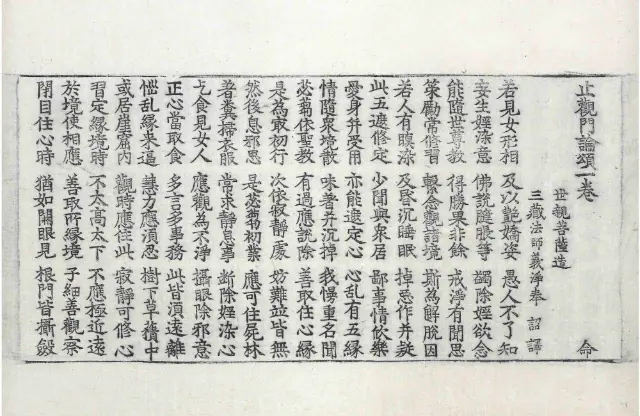 止觀門論頌一卷 命
世親菩薩造
三藏法師義淨奉 詔譯
若見女形相 及以艶嬌姿 愚人不了知
妄生婬染意 佛說膖脹等 蠲除婬欲念
能隨世尊教 得勝果非餘 戒淨有聞思
策勵常修習 繫念觀諸境 斯為解脫因
若人有瞋染 及昏沉睡眠 掉惡作并疑
此五遮修定 少聞與衆居 鄙事情忻樂
愛身并受用 亦能遮定心 心亂有五緣
情隨衆境散 味著并沉掉 我慢重名聞
苾芻依聖教 有過應說除 善取住心緣
是為最初行 次依寂靜處 妨難並皆無
然後息邪思 是苾芻初業 應可住屍林
著糞掃衣服 常求靜息事 斷除婬染心
乞食見女人 應觀為不淨 攝眼除邪意
正心當取食 多言多事務 此皆須遠離
惱亂緣來逼 慧力應須忍 樹下草積中
或居崖窟內 觀時應住此 寂靜可修心
習定緣境時 不太高太下 不應極近遠
於境使相應 善取所緣境 子細善觀察
閉目住心時 猶如開眼見 根門皆攝斂